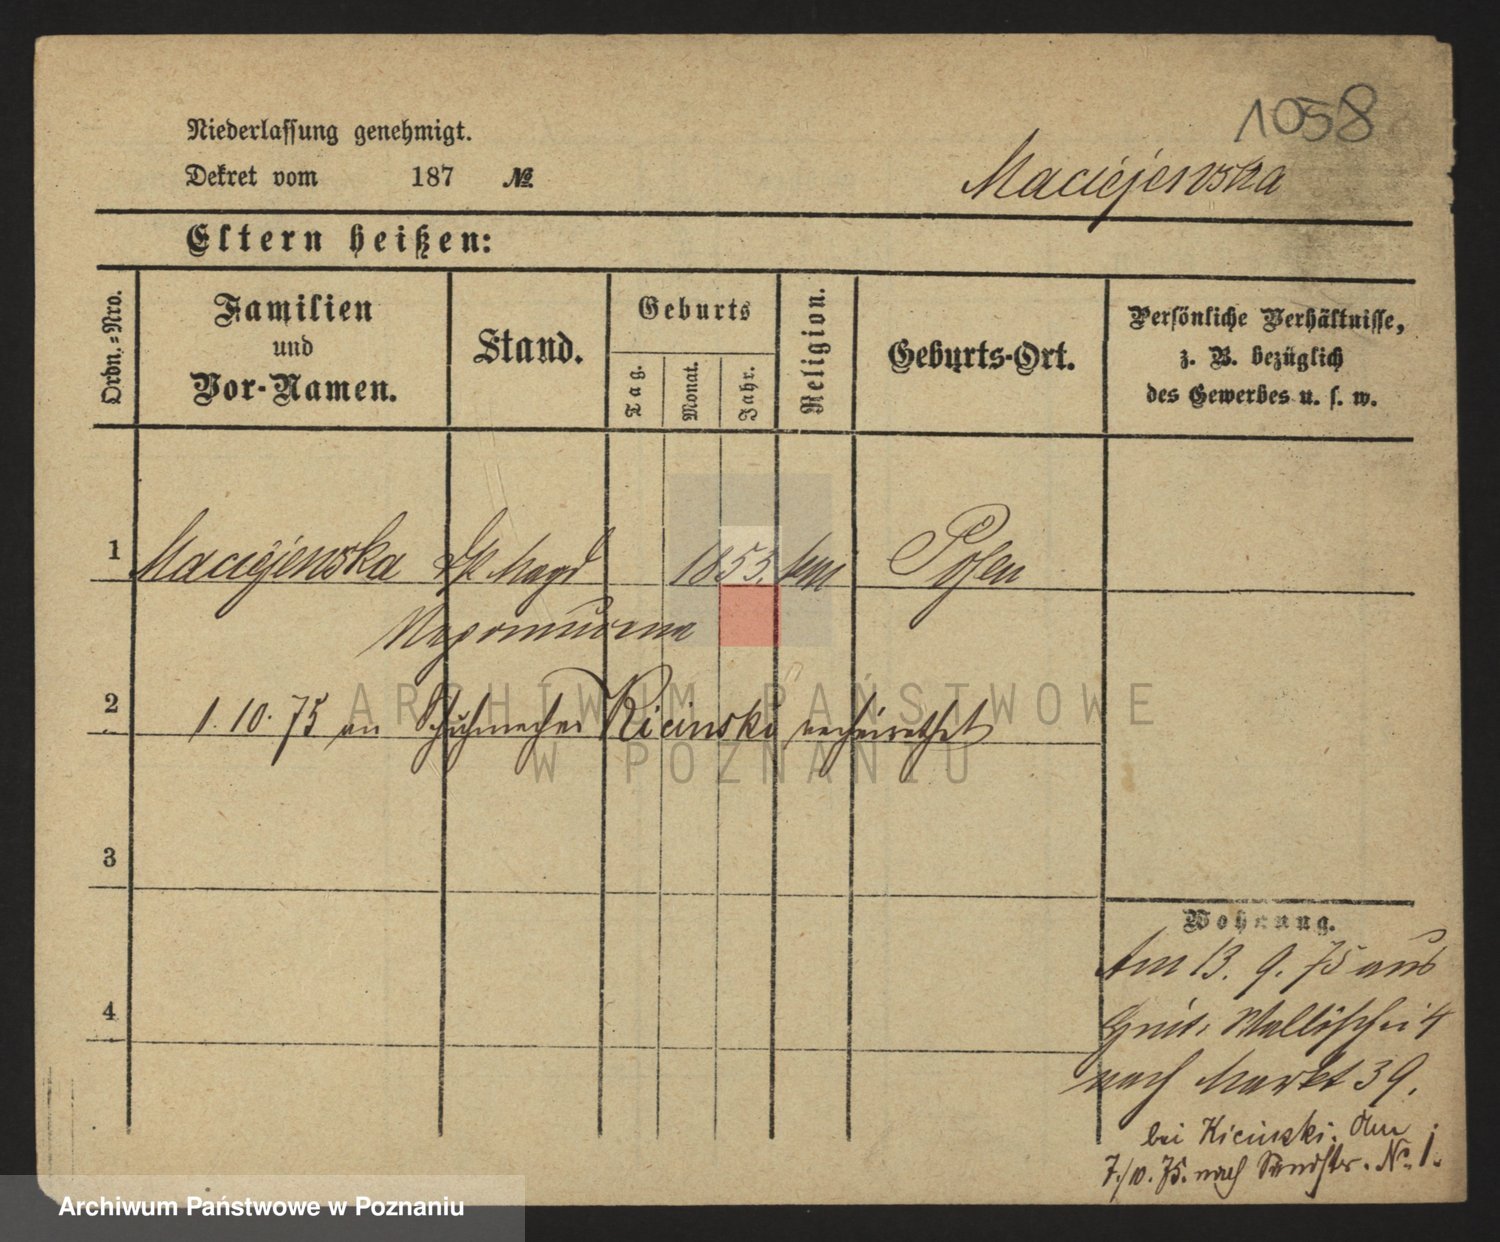 1058
Niederlassung genehmigt.
Dekret vom 187 №
Maciejewska
Eltern heißen:
Ordn.-Nro.
Familien
und
Vor-Namen.
Stand.
Geburts
Tag.
Monat.
Jahr.
Religion.
Geburts-Ort.
Persönliche Verhältnisse,
z. B. bezüglich
des Gewerbes u. s. w.
1 Maciejewska Magd 1853. Posen
Nepomucena
2 1. 10. 75 an Schuhmacher Kicinski verheirathet
3
4
Wohnung.
Am 13. 9. 75 aus
Wallischei 4
nach Markt 39.
bei Kicinski. Am
7./10. 75. nach No. 1.
ARCHIWUM PAŃSTWOWE
W POZNANIU
Archiwum Państwowe w Poznaniu